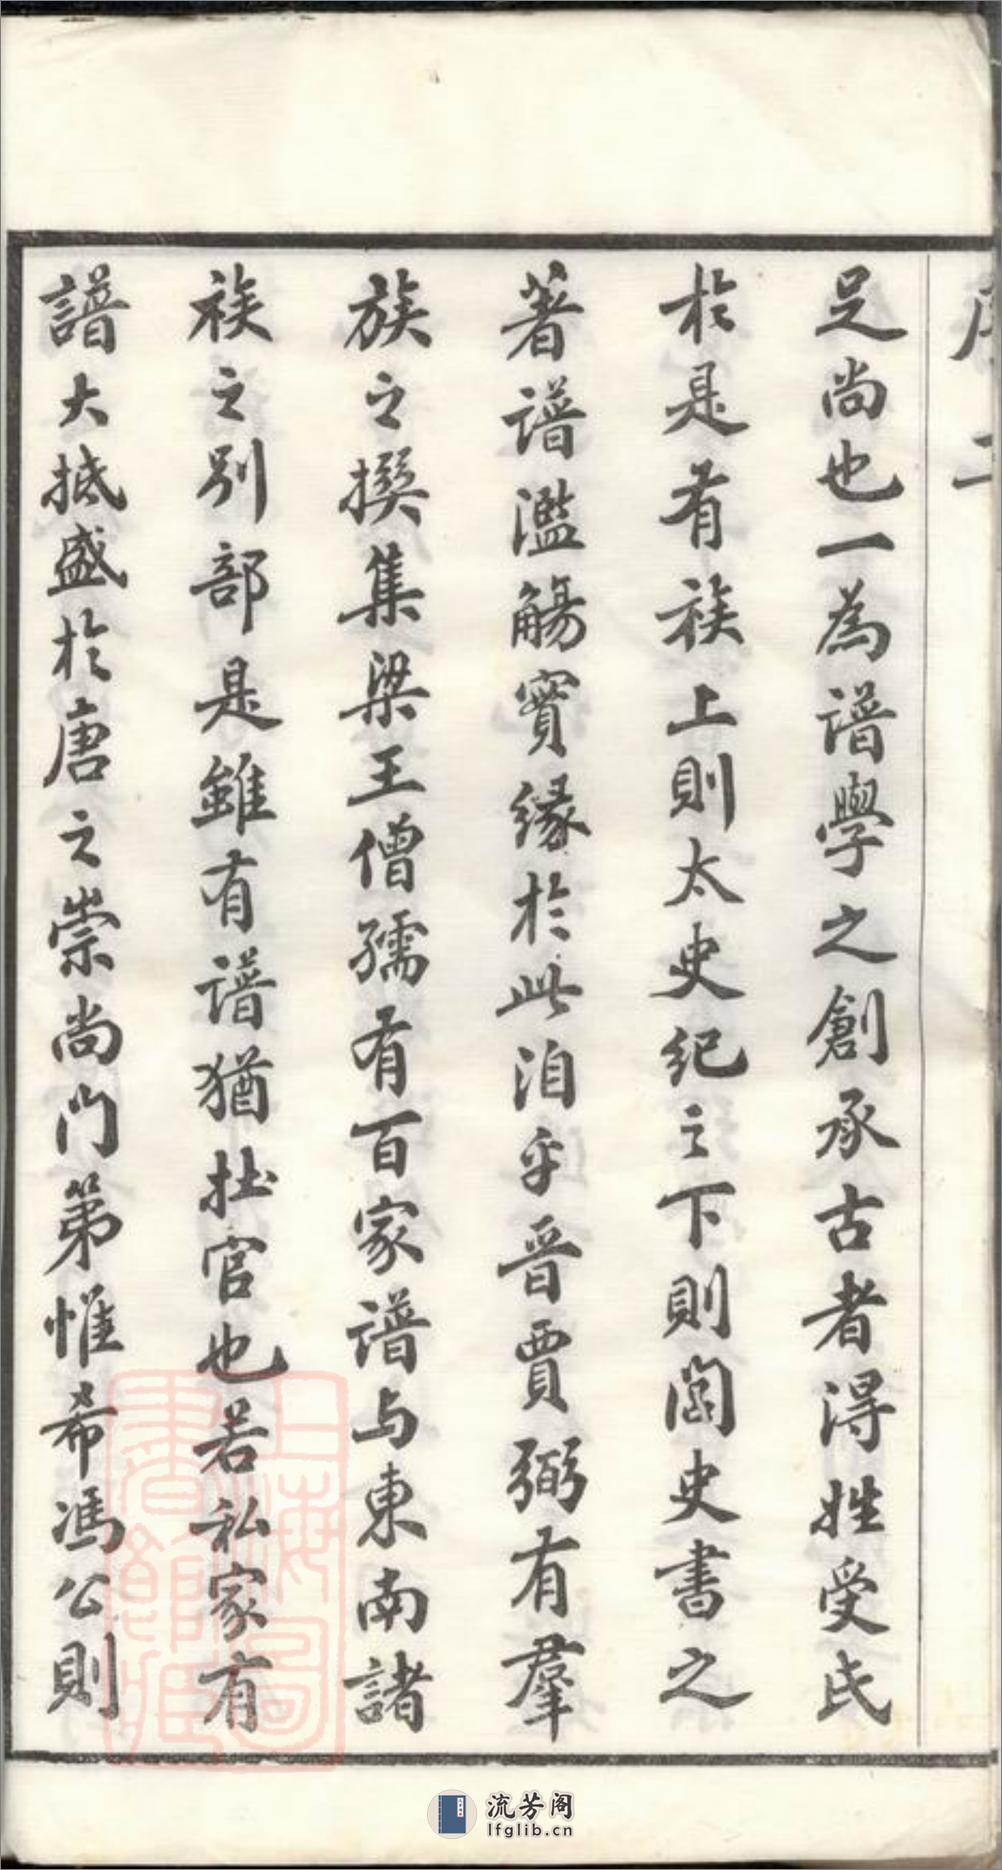 序二
足尚也一為譜學之創承古者得姓受氏
於是有族上則太史紀之下則閭史書之
著譜濫觴實緣於此洎乎晉賈弼有羣
族之撰集梁王僧孺有百家譜与東南諸
族之別部是雖有譜猶拄官也若私家有
譜大抵盛於唐之崇尚門第惟希馮公則
上海圖書館藏
流芳阁
lfglib.cn